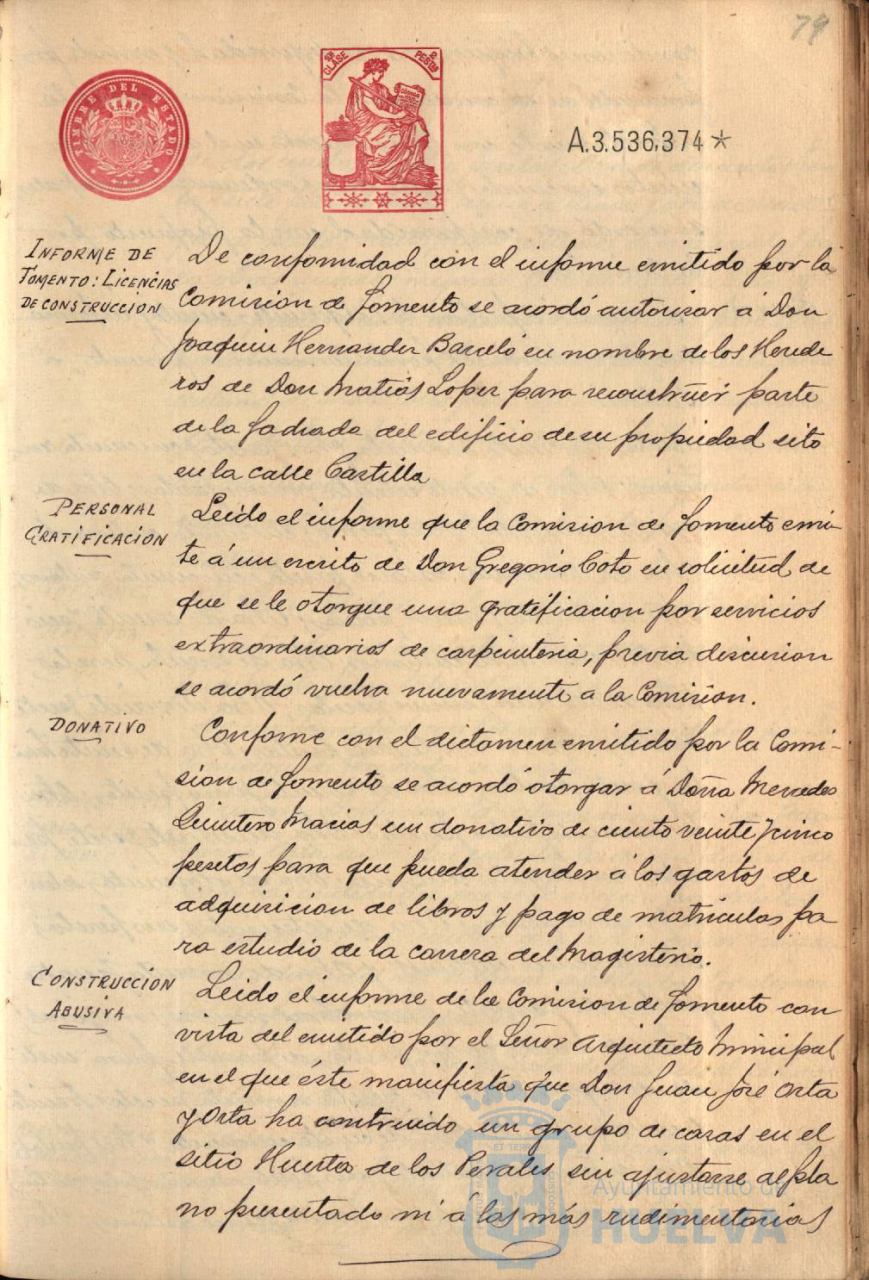 79
TIMBRE DEL ESTADO
CLASE
PESETAS
A.3.536,374*
INFORME DE
FOMENTO: LICENCIAS
DE CONSTRUCCION
De conformidad con el informe emitido por la
Comision de fomento se acordó autorizar á Don
Joaquin Hernandez Barceló en nombre de los Herede
ros de Don Matias Lopez para reconstruir parte
de la fachada del edificio de su propiedad sito
en la calle Castilla
PERSONAL
GRATIFICACION
Leido el informe que la Comision de fomento emi-
te á un escrito de Don Gregorio Coto en solicitud de
que se le otorgue una gratificacion por servicios
extraordinarios de carpinteria, previa discusion
se acordó vuelva nuevamente a la Comision.
DONATIVO
Conforme con el dictamen emitido por la Comi-
sion de fomento se acordó otorgar á Doña Mercedes
Quintero Macias un donativo de ciento veinte y cinco
pesetas para que pueda atender á los gastos de
adquisicion de libros y pago de matriculas pa
ra estudio de la carrera del Magisterio.
CONSTRUCCIÓN
ABUSIVA
Leido el informe de la Comision de fomento con
vista del emitido por el Señor Arquitecto Municipal
en el que éste manifiesta que Don Juan José Orta
y Orta ha contruido un grupo de casas en el
sitio Huerta de los Perales sin ajustarse al pla
no presentado ni á las más rudimentarias
Ayuntamiento de
HUELVA